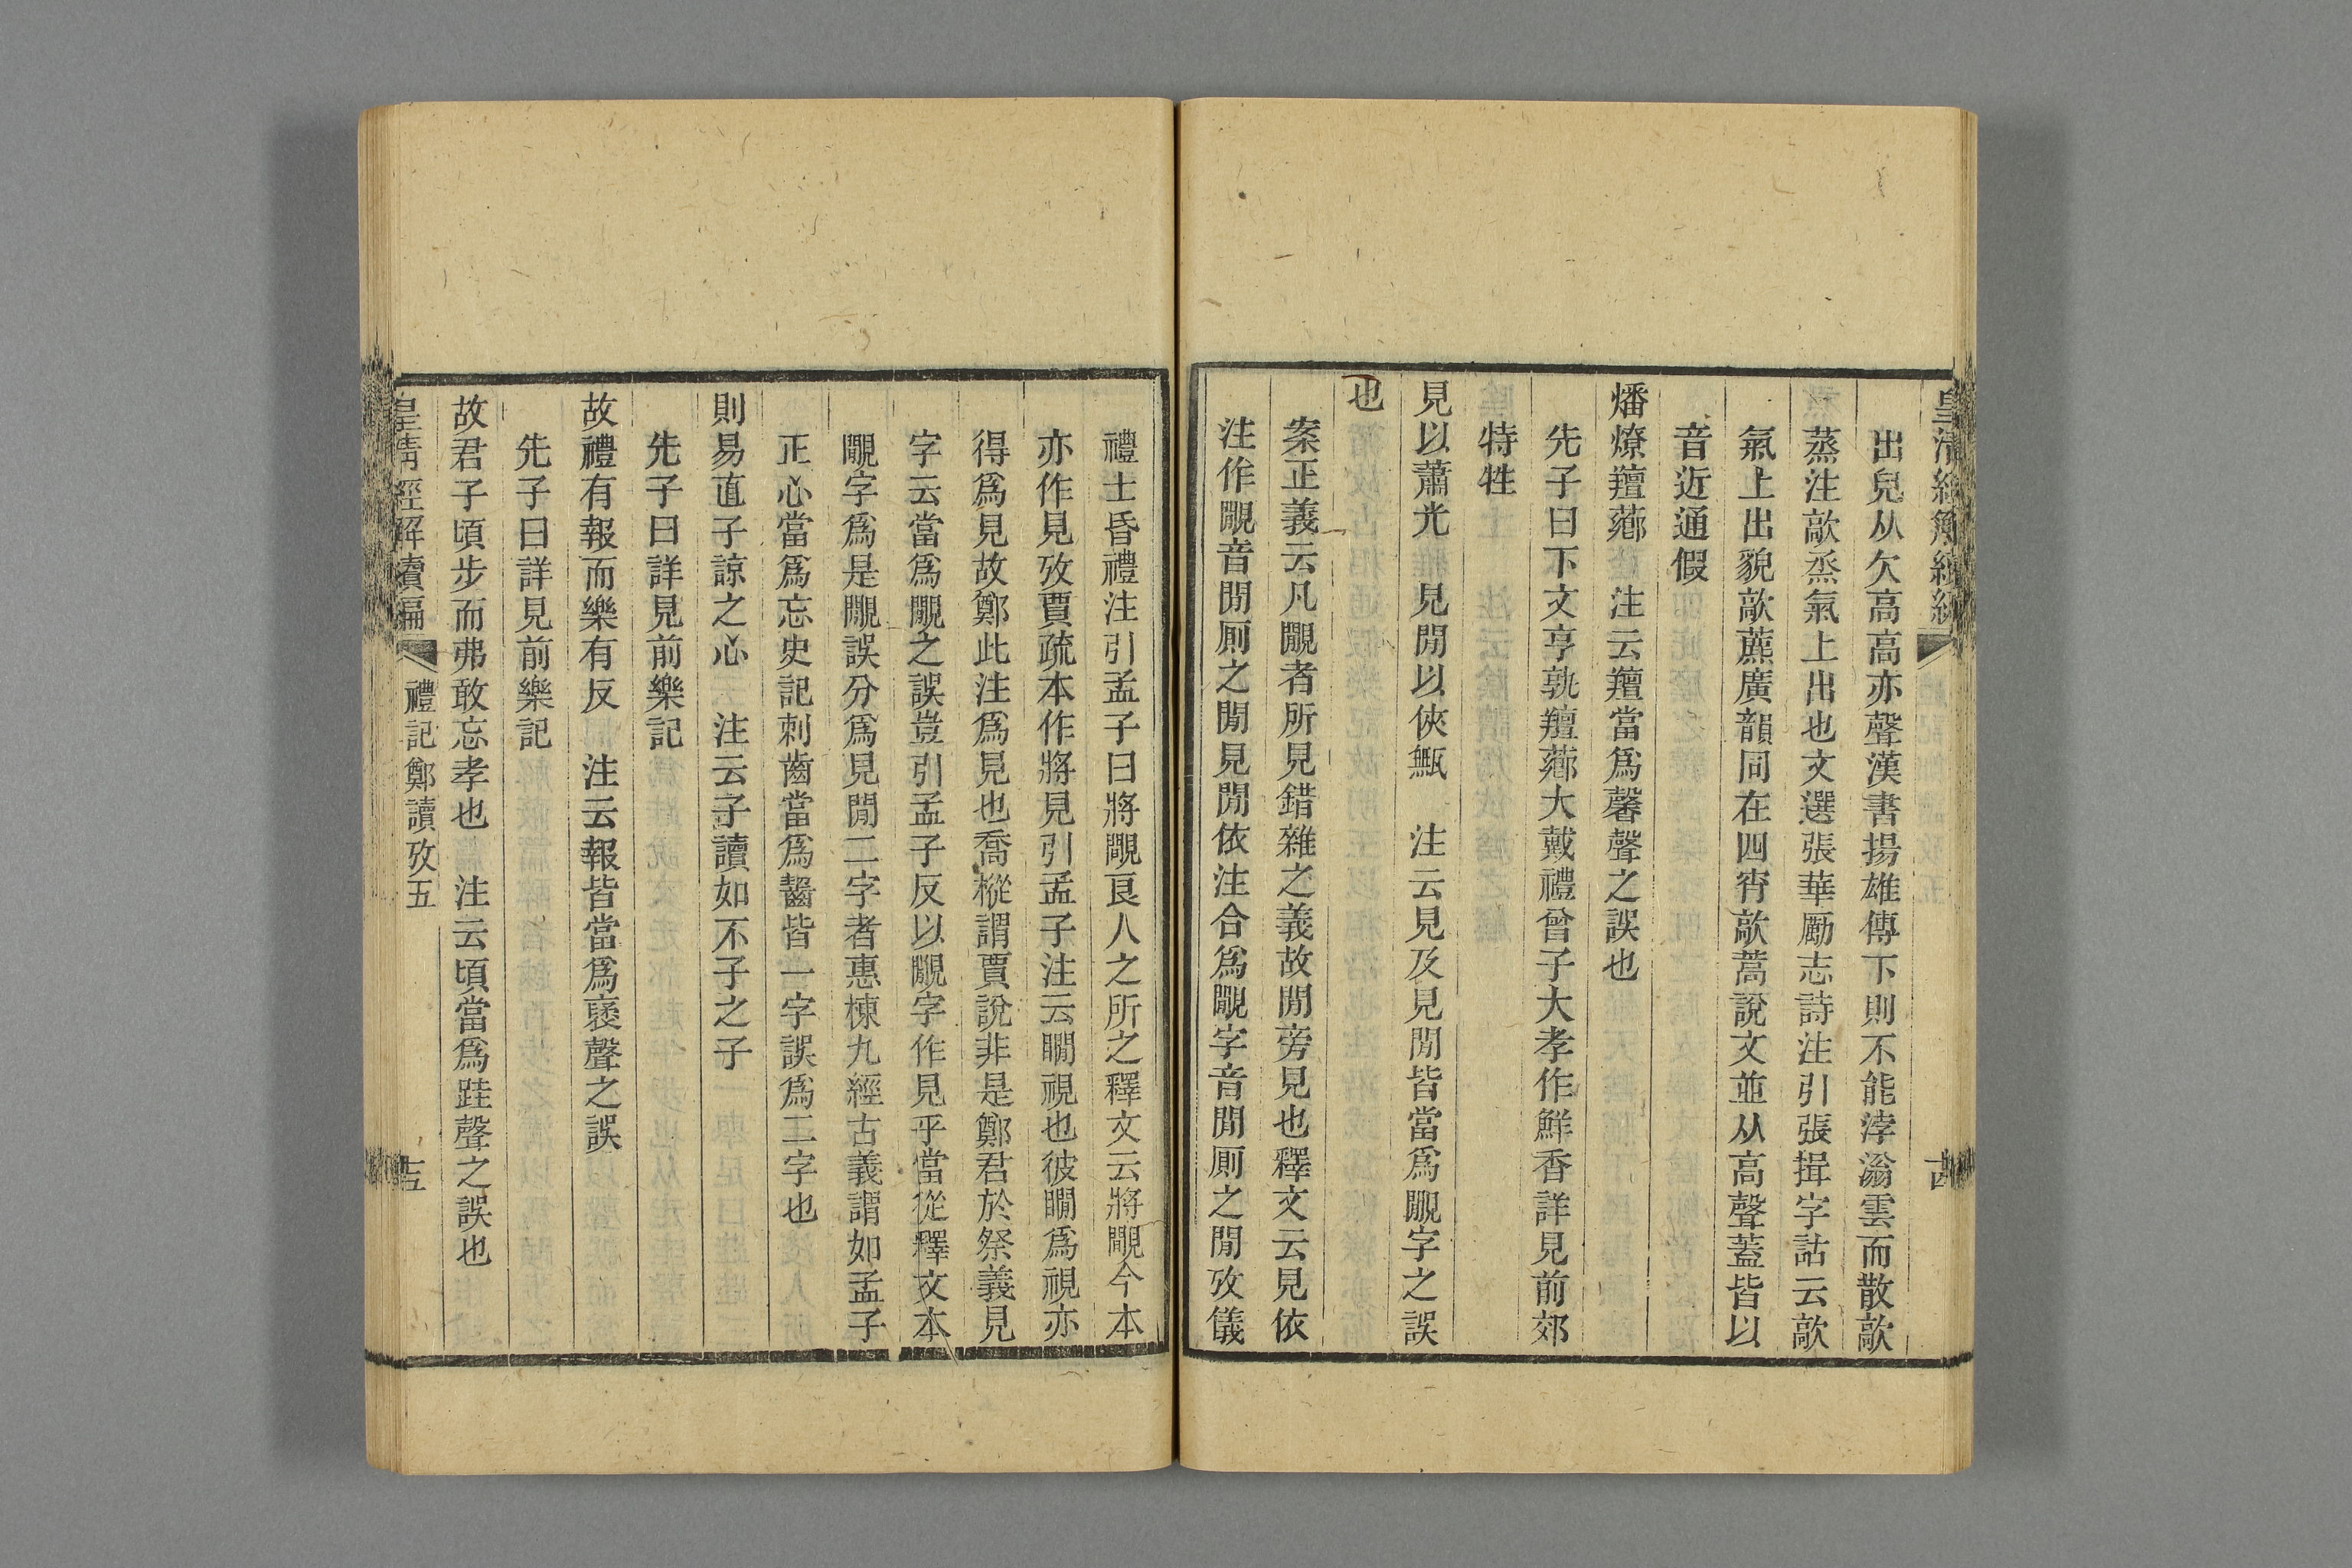 出皃从欠高高亦聲漢書揚雄傳下則不能浡滃雲而散歊
蒸注歊烝氣上出也文選張華勵志詩注引張揖字詁云歊
氣上出貌歊藨廣韻同在四宵歊蒿說文並从高聲蓋皆以
音近通假
燔燎羶薌　注云羶當爲馨聲之誤也
先子曰下文亨孰羶薌大戴禮曾子大孝作鮮香詳見前郊
特牲
見以蕭光　見閒以俠甒　注云見及見閒皆當爲覸字之誤
也
案正義云凡覸者所見錯雜之義故閒旁見也釋文云見依
注作覸音閒厠之閒見閒依注合爲覸字音閒厠之閒攷儀
禮士昏禮注引孟子曰將覸良人之所之釋文云將覸今本
亦作見攷賈疏本作將見引孟子注云瞷視也彼瞷爲視亦
得爲見故鄭此注爲見也喬樅謂賈說非是鄭君於祭義見
字云當爲覸之誤豈引孟子反以覸字作見乎當從釋文本
覸字爲是覸誤分爲見閒二字者惠棟九經古義謂如孟子
正心當爲忘史記刺齒當爲齧皆一字誤爲二字也
則易直子諒之心　注云子讀如不子之子
先子曰詳見前樂記
故禮有報而樂有反　注云報皆當爲襃聲之誤
先子曰詳見前樂記
故君子頃步而弗敢忘孝也　注云頃當爲跬聲之誤也
皇清經解續編　禮記鄭讀攷五　十五